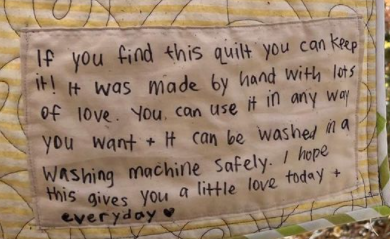 If you find this quilt you can keep
it! It was made by hand with lots
of love. You can use it in any way
you want + It can be washed in a
washing machine safely. I hope
this gives you a little love today +
everyday ♥